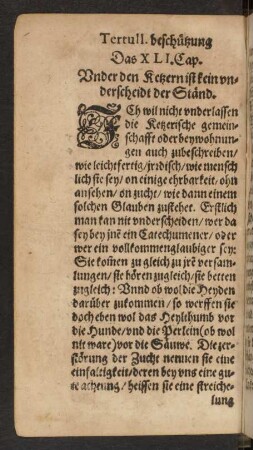 Tertull. beschützung
Das XLI. Cap.
Vnder den Ketzern ist kein vn-
derscheidt der Ständ.
ICh wil nicht vnderlassen
die Ketzerische gemein-
schafft oder beywohnun-
gen auch zubeschreiben/
wie leichtfertig/ jrrdisch/ wie mensch
lich sie sey/ on einige ehrbarkeit/ ohn
ansehen/ on zucht/ wie dann einem
solchen Glauben zustehet. Erstlich
man kan nit vnderscheiden/ wer da
sey bey jnē ein Catechumener/ oder
wer ein vollkommenglaubiger sey:
Sie kom̄en zu gleich zu jrē versam-
lungen/ sie hören zugleich/ sie betten
zugleich: Vnnd ob wol die Heyden
darüber zukommen/ so werffen sie
doch eben wol das Heylthumb vor
die Hunde/ vnd die Perlein (ob wol
nit ware) vor die Säuwe. Die zer-
störung der Zucht nennen sie eine
einfaltigkeit/ deren bey vns eine gu-
te achtung/ heissen sie eine streiche-
lung